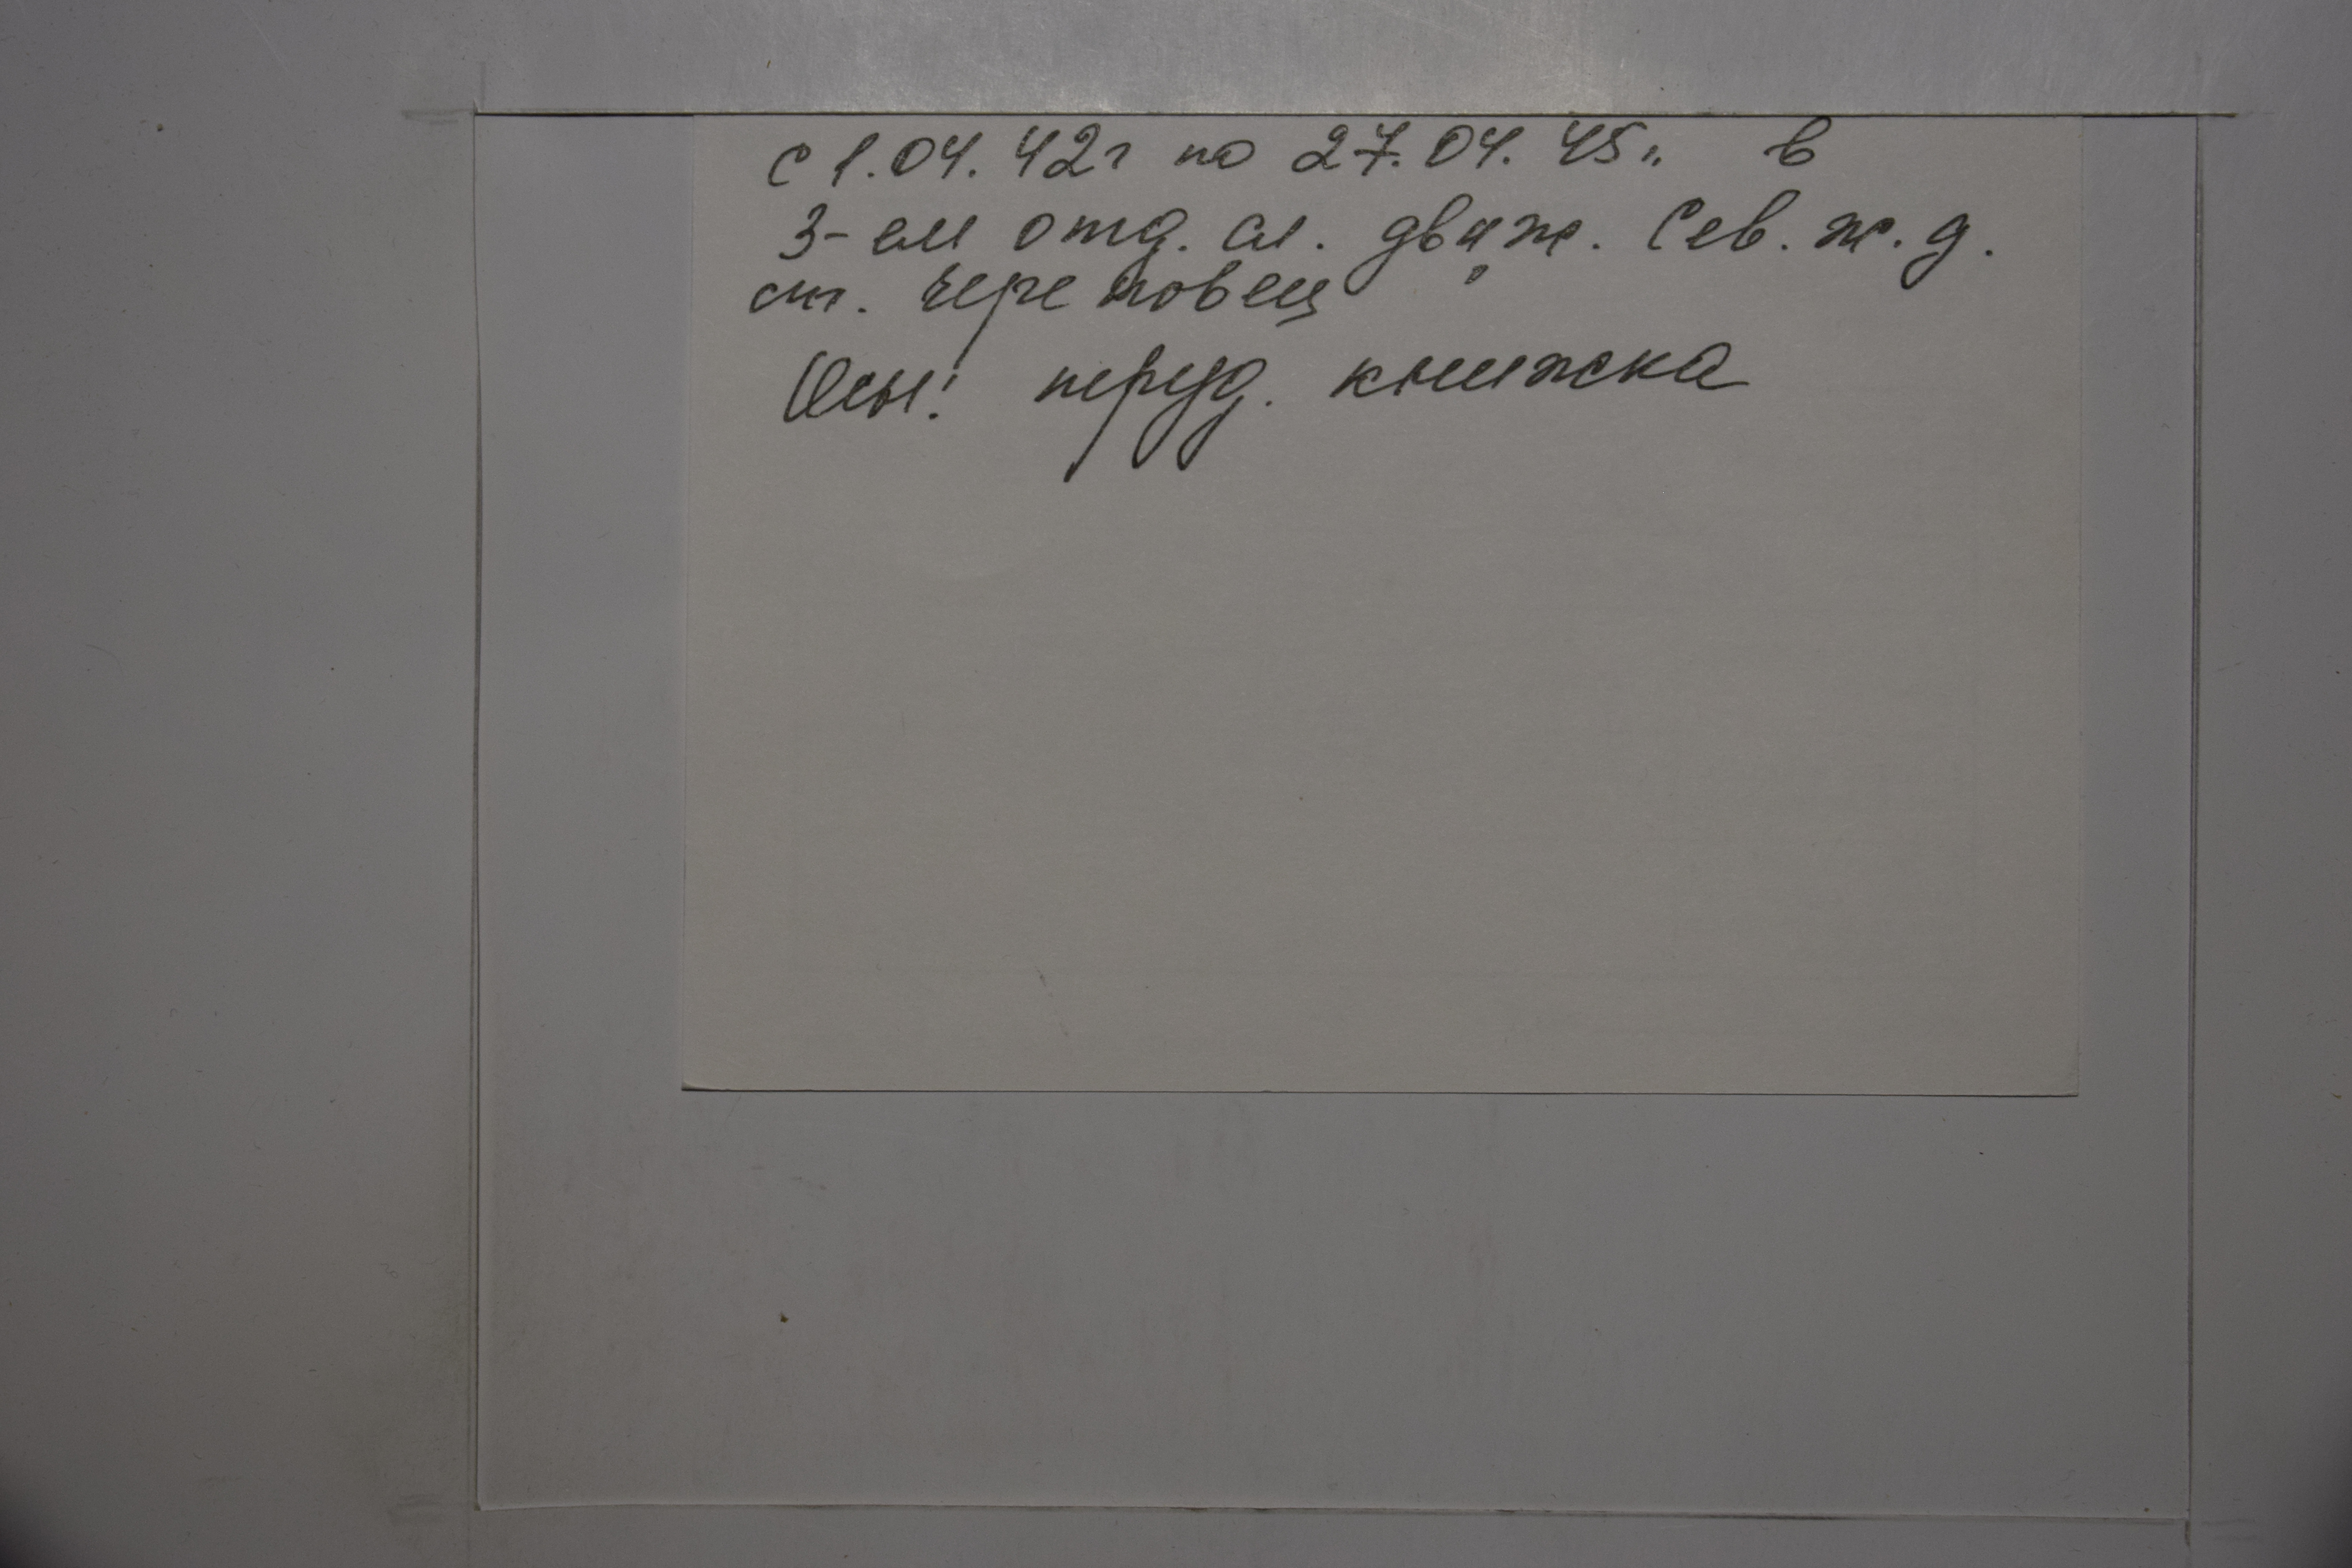 с 1.04.42г по 27.04.45г. в
3-ем отд. сл. движ. Сев. ж.д.
ст. Череповец
Осн: труд. книжка